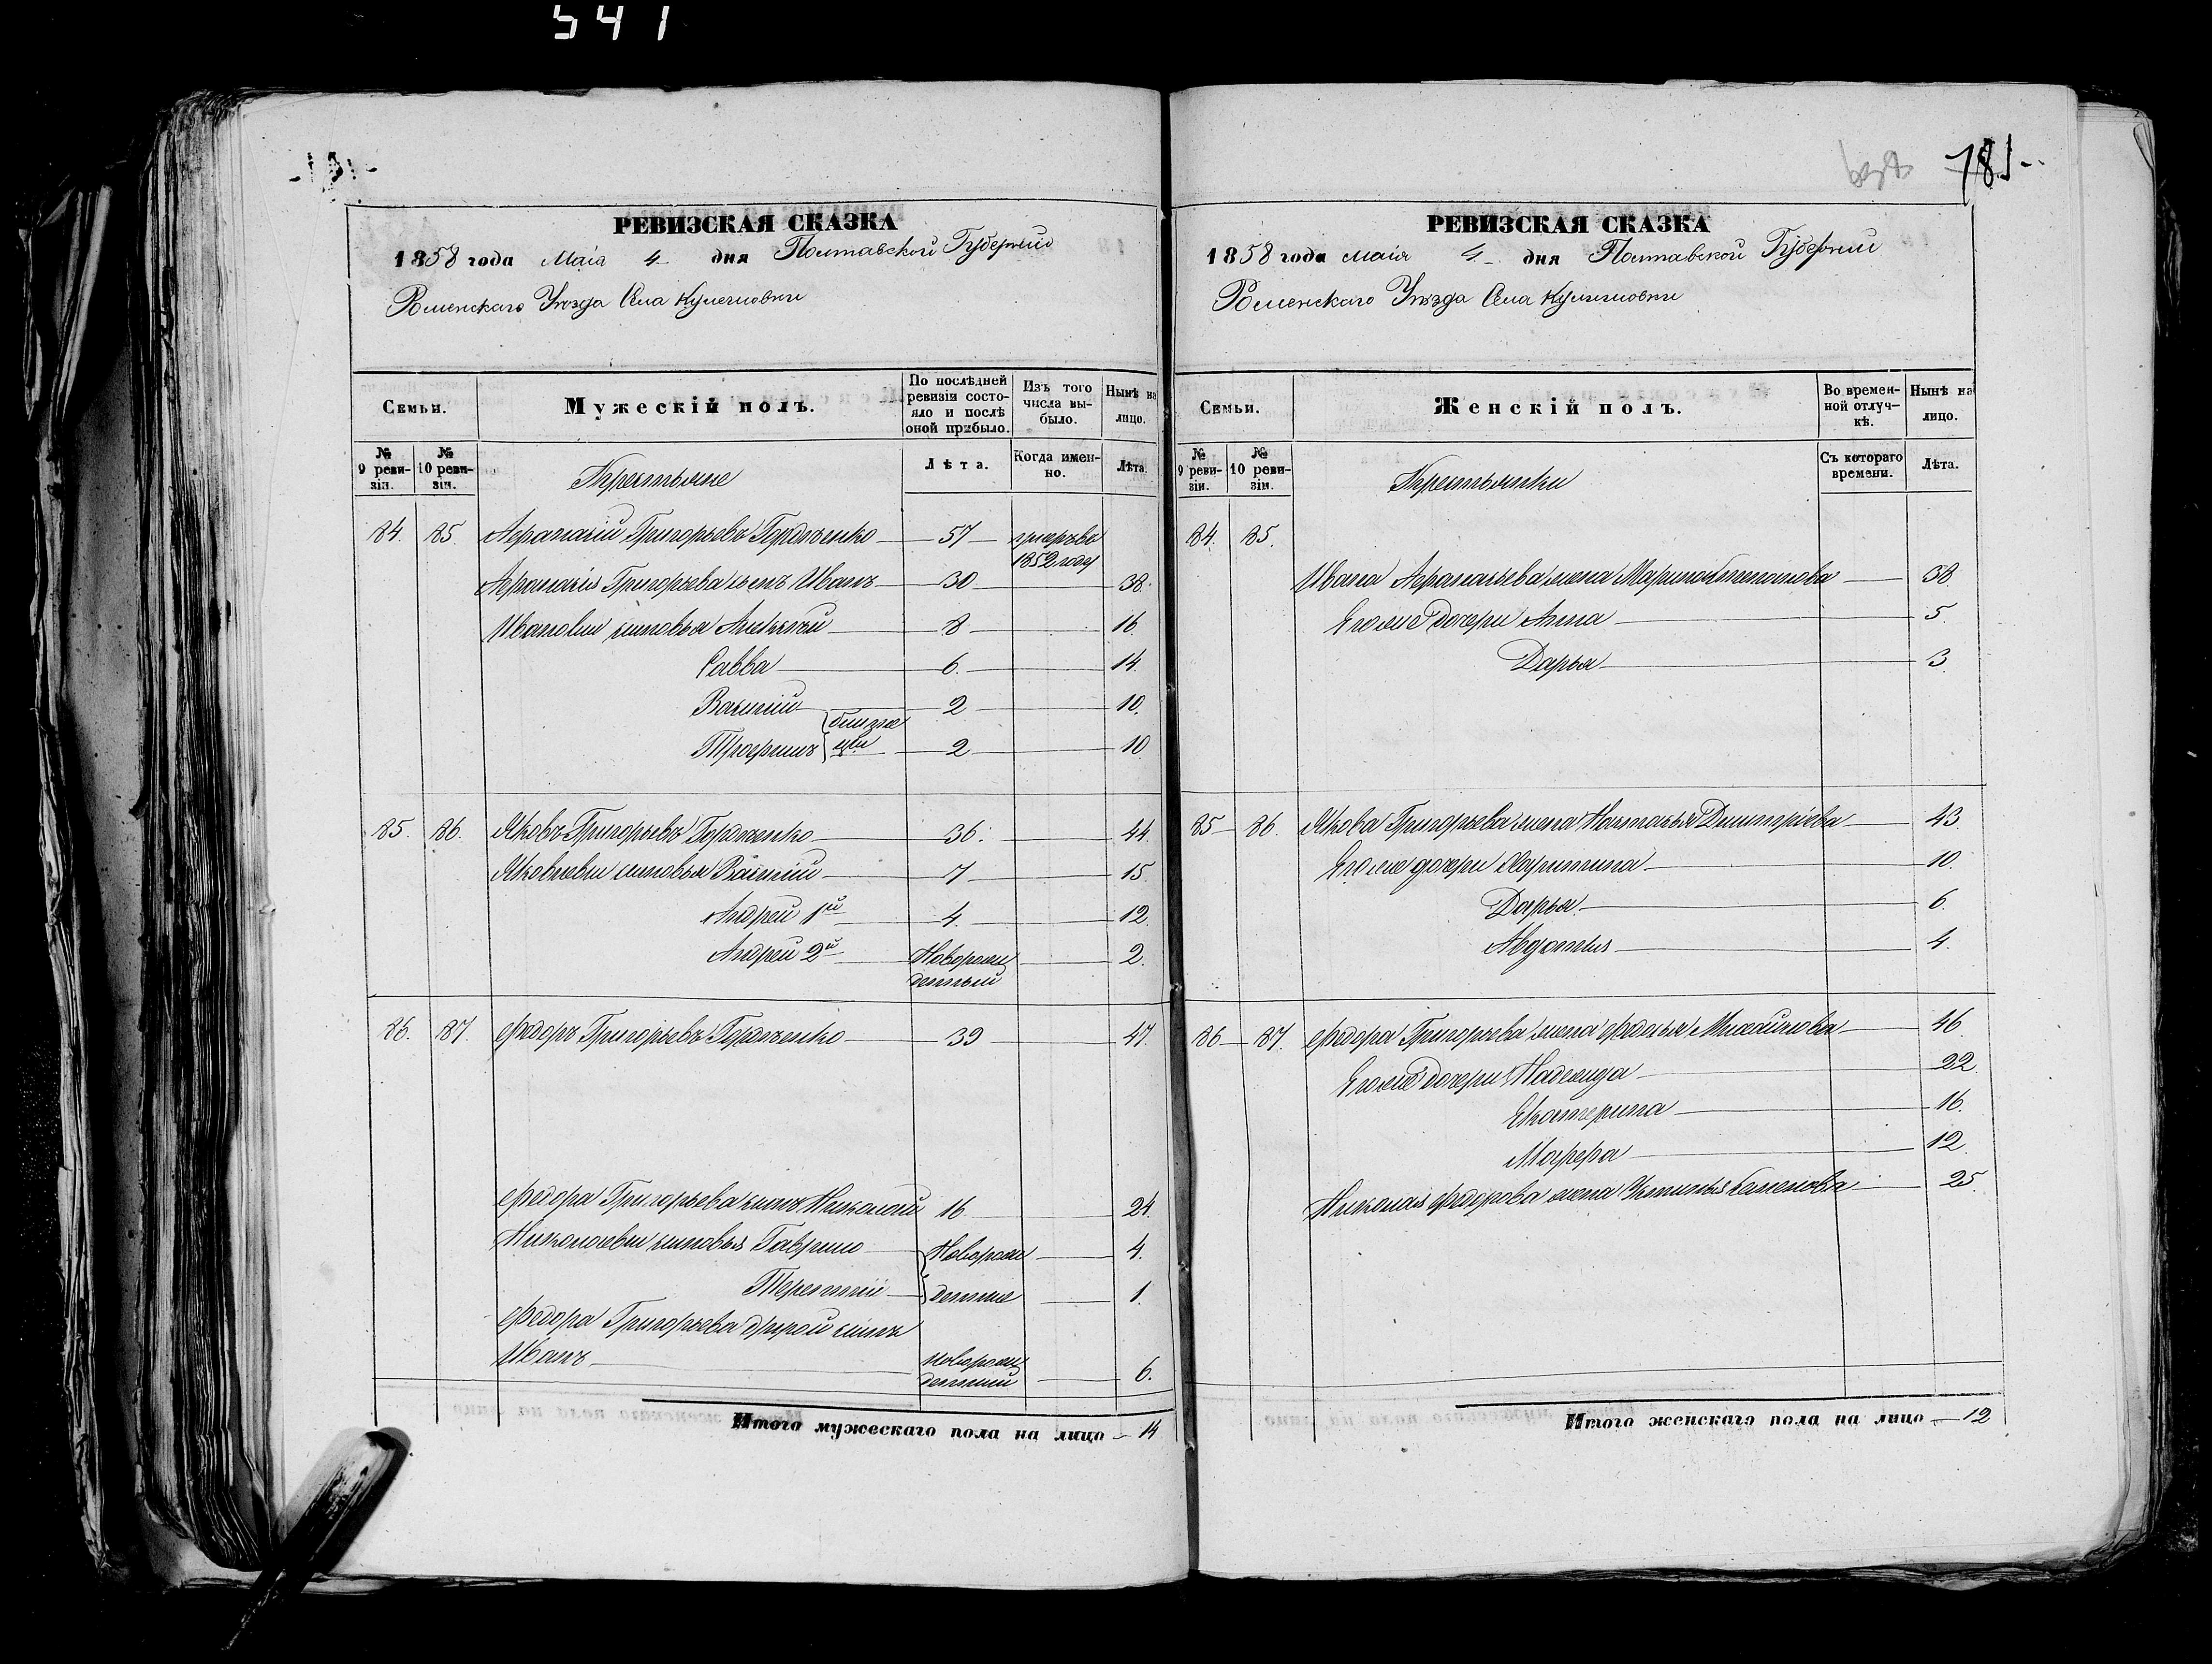 541
РЕВИЗСКАЯ СКАЗКА
1858 года Маія 4 дня Полтавской Губерніи
Роменскаго Уѣзда Села
Семьи.
Мужескій полъ.
По послѣдней ревизіи состояло и послѣ оной прибыло.
Изъ того числа выбыло.
Нынѣ на лицо.
№ 9 ревизіи.
№ 10 ревизіи.
Крестьяне
Лѣта.
Когда именно.
Лѣта.
84. 85. Афанасій Григорьевъ Гордѣенко 57 умеръ въ 1852 году
Афанасія Григорьева сынъ Иванъ 30 38.
Ивановы сыновья Алексѣй 8 16.
Савва 6. 14.
Василій 2 10.
Трофимъ 2 10
близнецы
85. 86. Яковъ Григорьевъ Гордѣенко 36. 44.
Яковлевы сыновья Василій 7 15.
Андрей 1й 4. 12.
Андрей 2й Новорожденный 2.
86. 87. Федоръ Григорьевъ Гордѣенко 39 47.
Федора Григорьева сынъ Николай 16 24.
Николаевы сыновья Гаврило 4.
Новорожденные
Терентій 1.
Федора Григорьева другой сынъ
Иванъ новорожденный 6.
Итого мужескаго пола на лицо 14
181
РЕВИЗСКАЯ СКАЗКА
1858 года маія 4 дня Полтавской Губерніи
Роменскаго Уѣзда Села
Семьи.
Женскій полъ.
Во временной отлучкѣ.
Нынѣ на лицо.
№ 9 ревизіи.
№ 10 ревизіи.
Крестьянки
Съ котораго времени.
Лѣта.
84. 85.
Ивана Афанасьева жена Марина 38
Его же дочери Анна 5.
Дарья 3.
85 86. Якова Григорьева жена Наталья Дмитріева 43.
Его же дочери Харитина 10.
Дарья 6.
Авдотія 4.
86 87. Федора Григорьева жена Михайлова 46.
Его же дочери Надежда 22.
Екатерина 16.
12.
Николая Федорова жена Устинья Семенова 25.
Итого женскаго пола на лицо 12